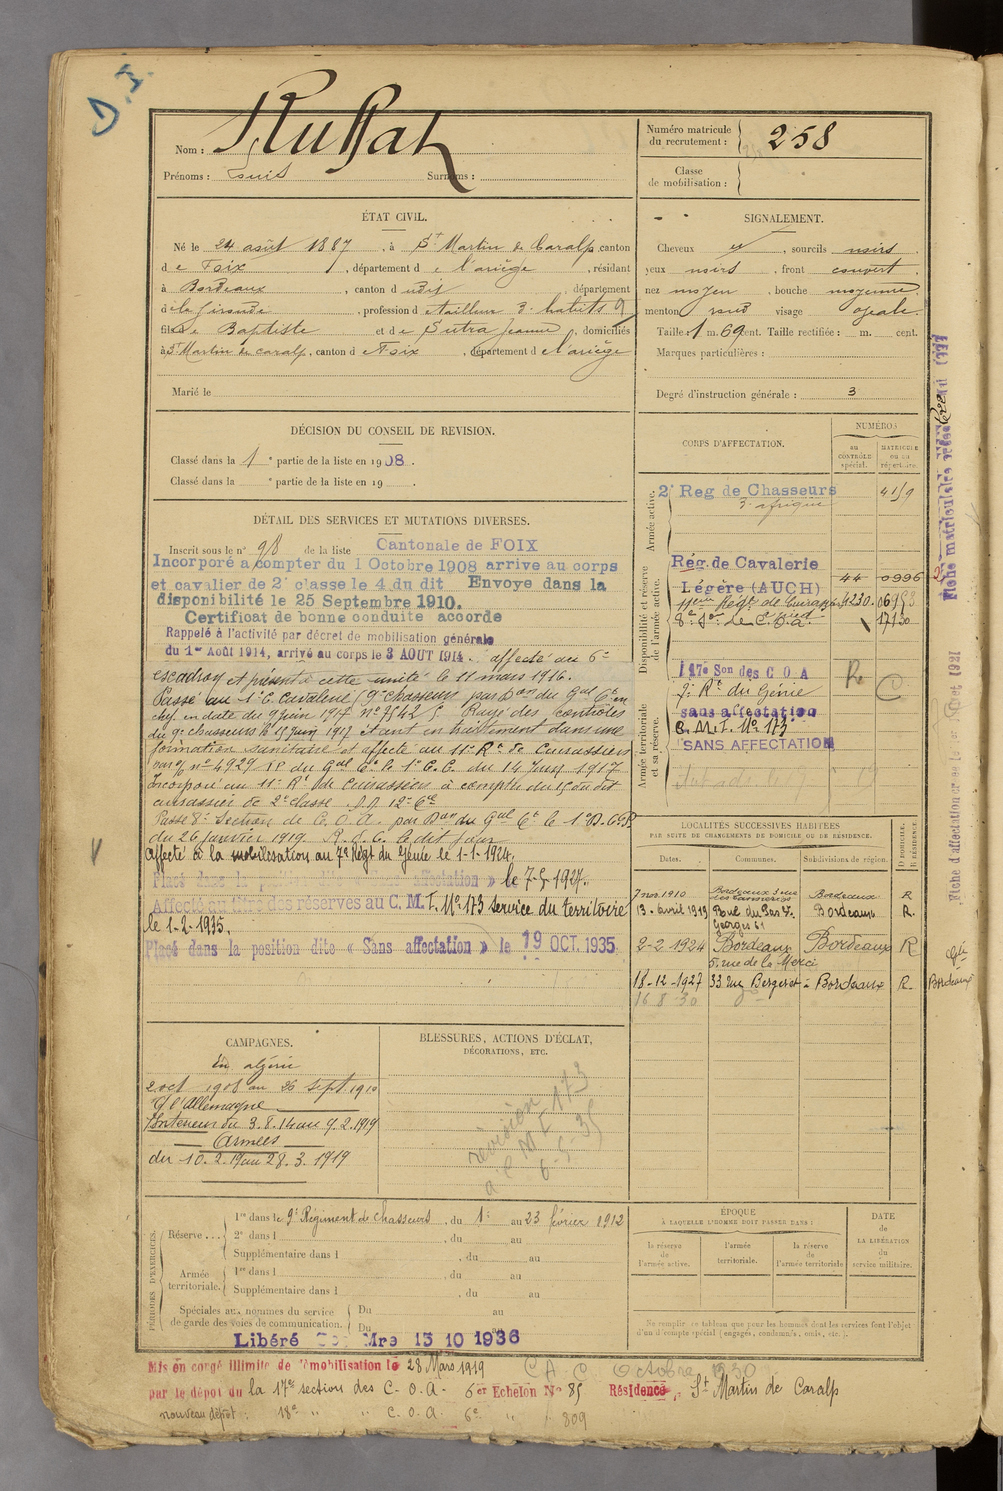 D. I.
Nom : Ruffat
Prénoms : Louis Surnoms :
Numéro matricule
du recrutement : 258
Classe
de mobilisation :
ÉTAT CIVIL.
Né le 24 août 1887, à St Martin de Caralp, canton
de Foix, département de l'ariège, résidant
à Bordeaux, canton dudit, département
de la Gironde, profession de tailleur d'habits
fils de Baptiste et de Sutra Jeanne, domiciliés
à St Martin de caralp, canton de Foix, département de l'ariège
Marié le
SIGNALEMENT.
Cheveux, sourcils noirs
yeux noirs, front couvert
nez moyen, bouche moyenne
menton rond visage ovale
Taille 1 m. 69 cent. Taille rectifiée : m. cent.
Marques particulières :
Degré d'instruction générale : 3
DÉCISION DU CONSEIL DE REVISION.
Classé dans la 1e partie de la liste en 1908.
Classé dans la e partie de la liste en 19 .
DÉTAIL DES SERVICES ET MUTATIONS DIVERSES.
Inscrit sous le n° 98 de la liste Cantonale de FOIX
Incorporé a compter du 1 Octobre 1908 arrive au corps
et cavalier de 2e classe le 4 du dit Envoye dans la
disponibilité le 25 Septembre 1910.
Certificat de bonne conduite accorde
Rappelé à l'activité par décret de mobilisation générale
du 1er Août 1914, arrivé au corps le 3 AOUT 1914. affecté au 6e
escadron et présent à cette unité le 11 mars 1916.
Passé au 1er C. Cavalerie (9e chasseurs par Don du Gal Ct en
chef en date du 9 juin 1917 n° 7542 S. Rayé des contrôles
du 9e chasseurs le 15 juin 1917 étant en traitement dans une
formation sanitaire et affecté au 11e Rt de Cuirassiers
par n° 4927 du Gal Ct le 1er C.C. du 14 juin 1917
Incorporé au 11e Rt de cuirassiers à compter du 15 du dit
cuirassier de 2e classe
Passé 8e Section de C.O.A. par Don du Gal Ct le 1er
du 26 janvier 1919. R.d.C. le dit jour
affecté à la mobilisation au 7e Régt du Génie le 1-1-1924.
Placé dans la position dite « Sans affectation » le 7-5-1927.
Affecté au titre des réserves au C. M. I. No 173 service du territoire
le 1-2-1935.
Placé dans la position dite « Sans affectation » le 19 OCT. 1935
CORPS D'AFFECTATION.
NUMÉROS
au CONTRÔLE spécial.
MATRICULE ou au répertoire.
Armée active.
2e Reg de Chasseurs 4159
d'afrique
Disponibilité et réserve de l'armée active.
Rég. de Cavalerie
Légère (AUCH) 44 0996
11ème Régt de Cuirassiers 4230.
8e Son de C.O.A.
Armée territoriale et sa réserve.
17e Son des C O A
7e Rt du Génie
sans affectation
C.M.I. No 173
SANS AFFECTATION
LOCALITÉS SUCCESSIVES HABITÉES
PAR SUITE DE CHANGEMENTS DE DOMICILE OU DE RÉSIDENCE.
Dates. Communes. Subdivisions de région. D DOMICILE. R RÉSIDENCE.
7 nov. 1910 Bordeaux Bordeaux R
13. avril 1919 Bordeaux R.
2-2-1924 Bordeaux Bordeaux R
5, rue de la Merci
18-12-1927 33 rue Bergeret à Bordeaux R.
16 8 30
CAMPAGNES.
En algérie
2 oct 1908 au 26 sept. 1910
C/ l'Allemagne
Intérieur du 3.8.14 au 9.2.1919
Armées
du 10.2.19 au 28.3.1919
BLESSURES, ACTIONS D'ÉCLAT,
DÉCORATIONS, ETC.
révision
a C M I 173
6-5-35
PÉRIODES D'EXERCICES.
Réserve . . .
1re dans le 9e Régiment de chasseurs, du 1er au 23 février 1912
2e dans l , du au
Supplémentaire dans l , du au
Armée territoriale.
1re dans l , du au
Supplémentaire dans l , du au
Spéciales aux hommes du service
de garde des voies de communication.
Du au
Du au
ÉPOQUE
À LAQUELLE L'HOMME DOIT PASSER DANS :
la réserve de l'armée active.
l'armée territoriale.
la réserve de l'armée territoriale
DATE
de
LA LIBÉRATION
du
service militaire.
Ne remplir ce tableau que pour les hommes dont les services font l'objet
d'un décompte spécial (engagés, condamnés, omis, etc.).
Libéré Mre 15 10 1936
Mis en congé illimité de démobilisation le 28 Mars 1919
C A C Octobre 1930
par le dépot du la 17e section des C.O.A. 6er Echelon No 85 Résidence, St Martin de Caralp
nouveau dépôt : 18e " " C.O.A. 6e " " 809
Bordeaux